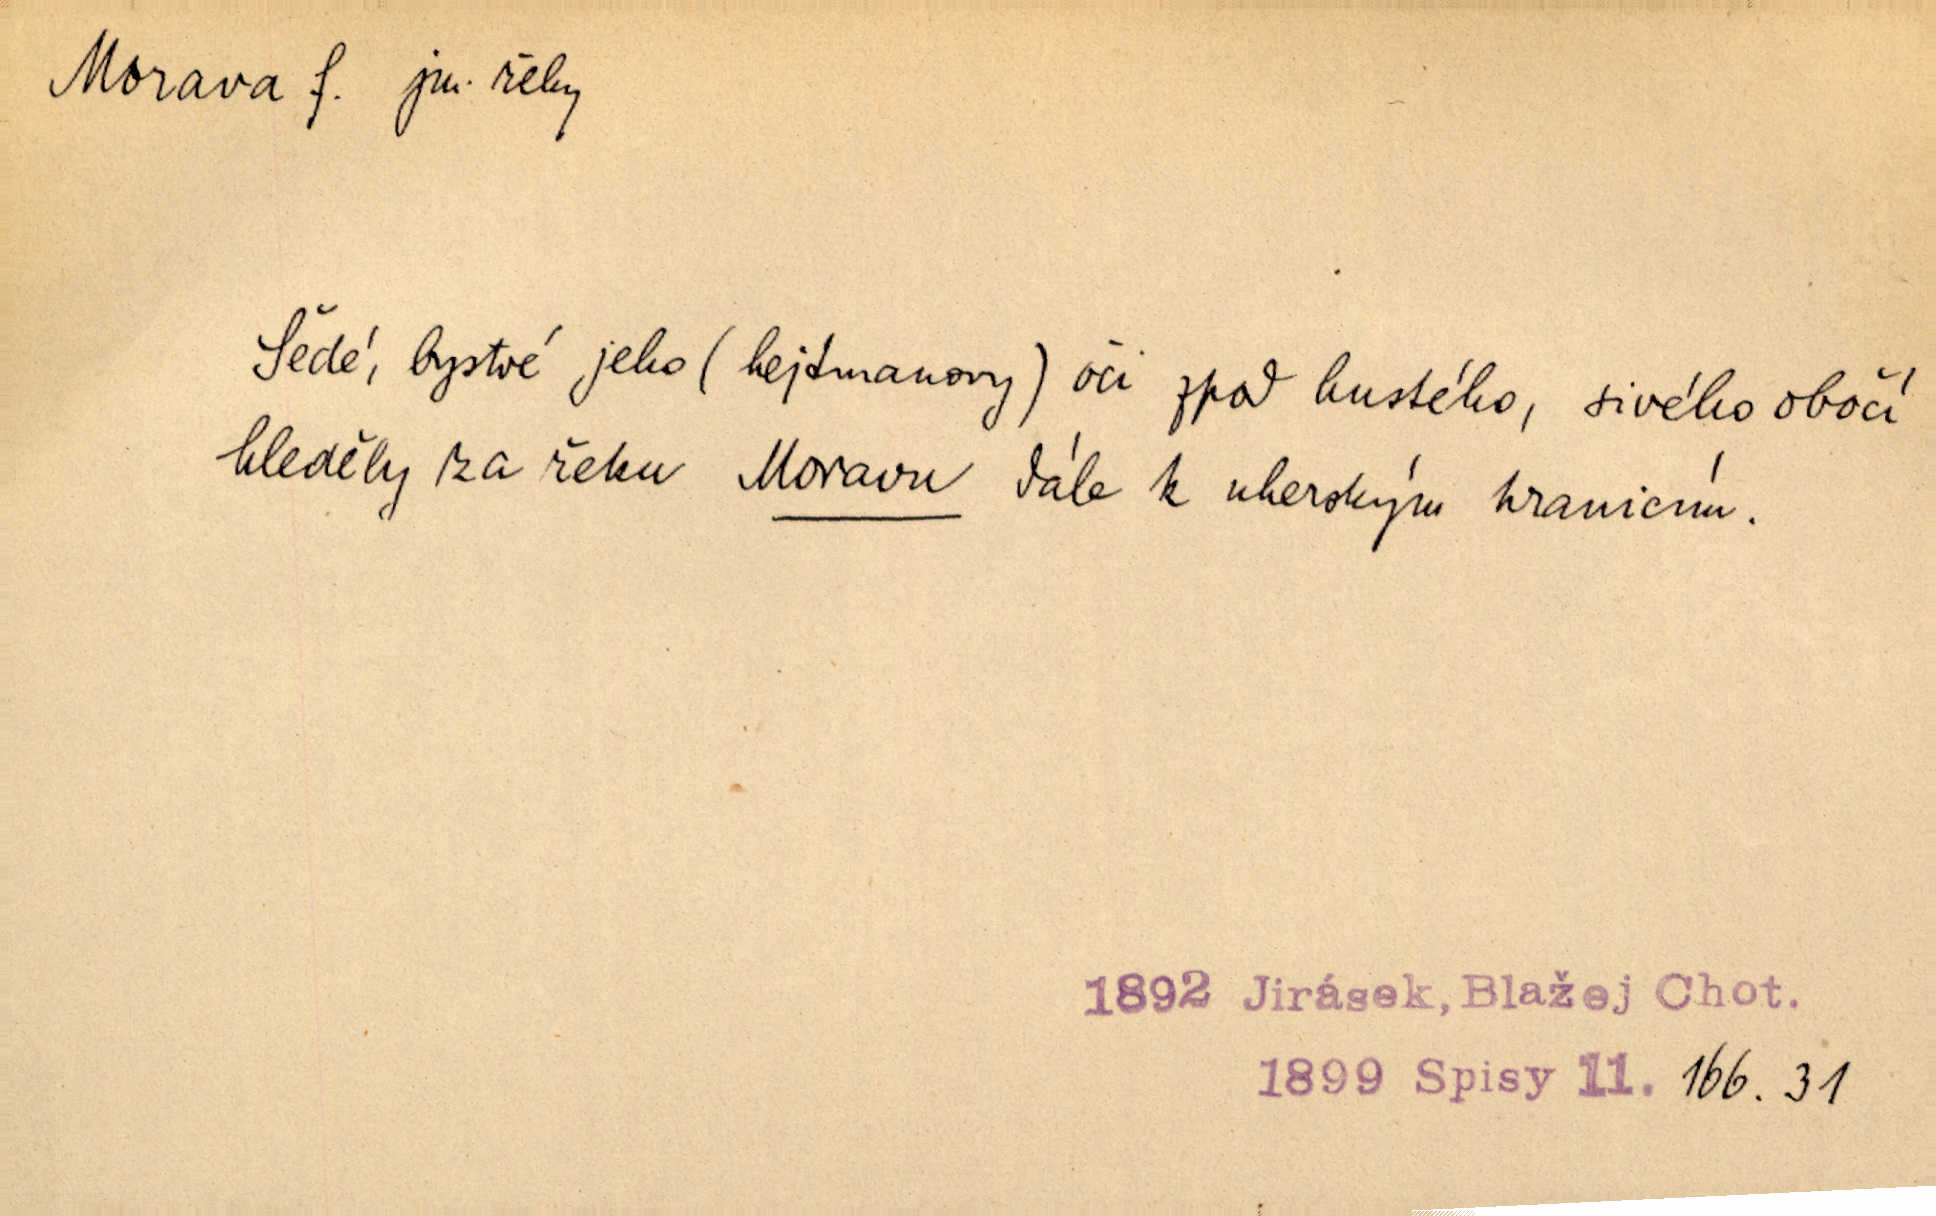 Morava f. jm. řeky
Šedé, bystré jeho (hejtmanovy) oči zpod hustého, sivého obočí
hleděly za řeku Moravu dále k uherským hranicím.
1892 Jirásek, Blažej Chot.
1899 Spisy 11. 166. 31